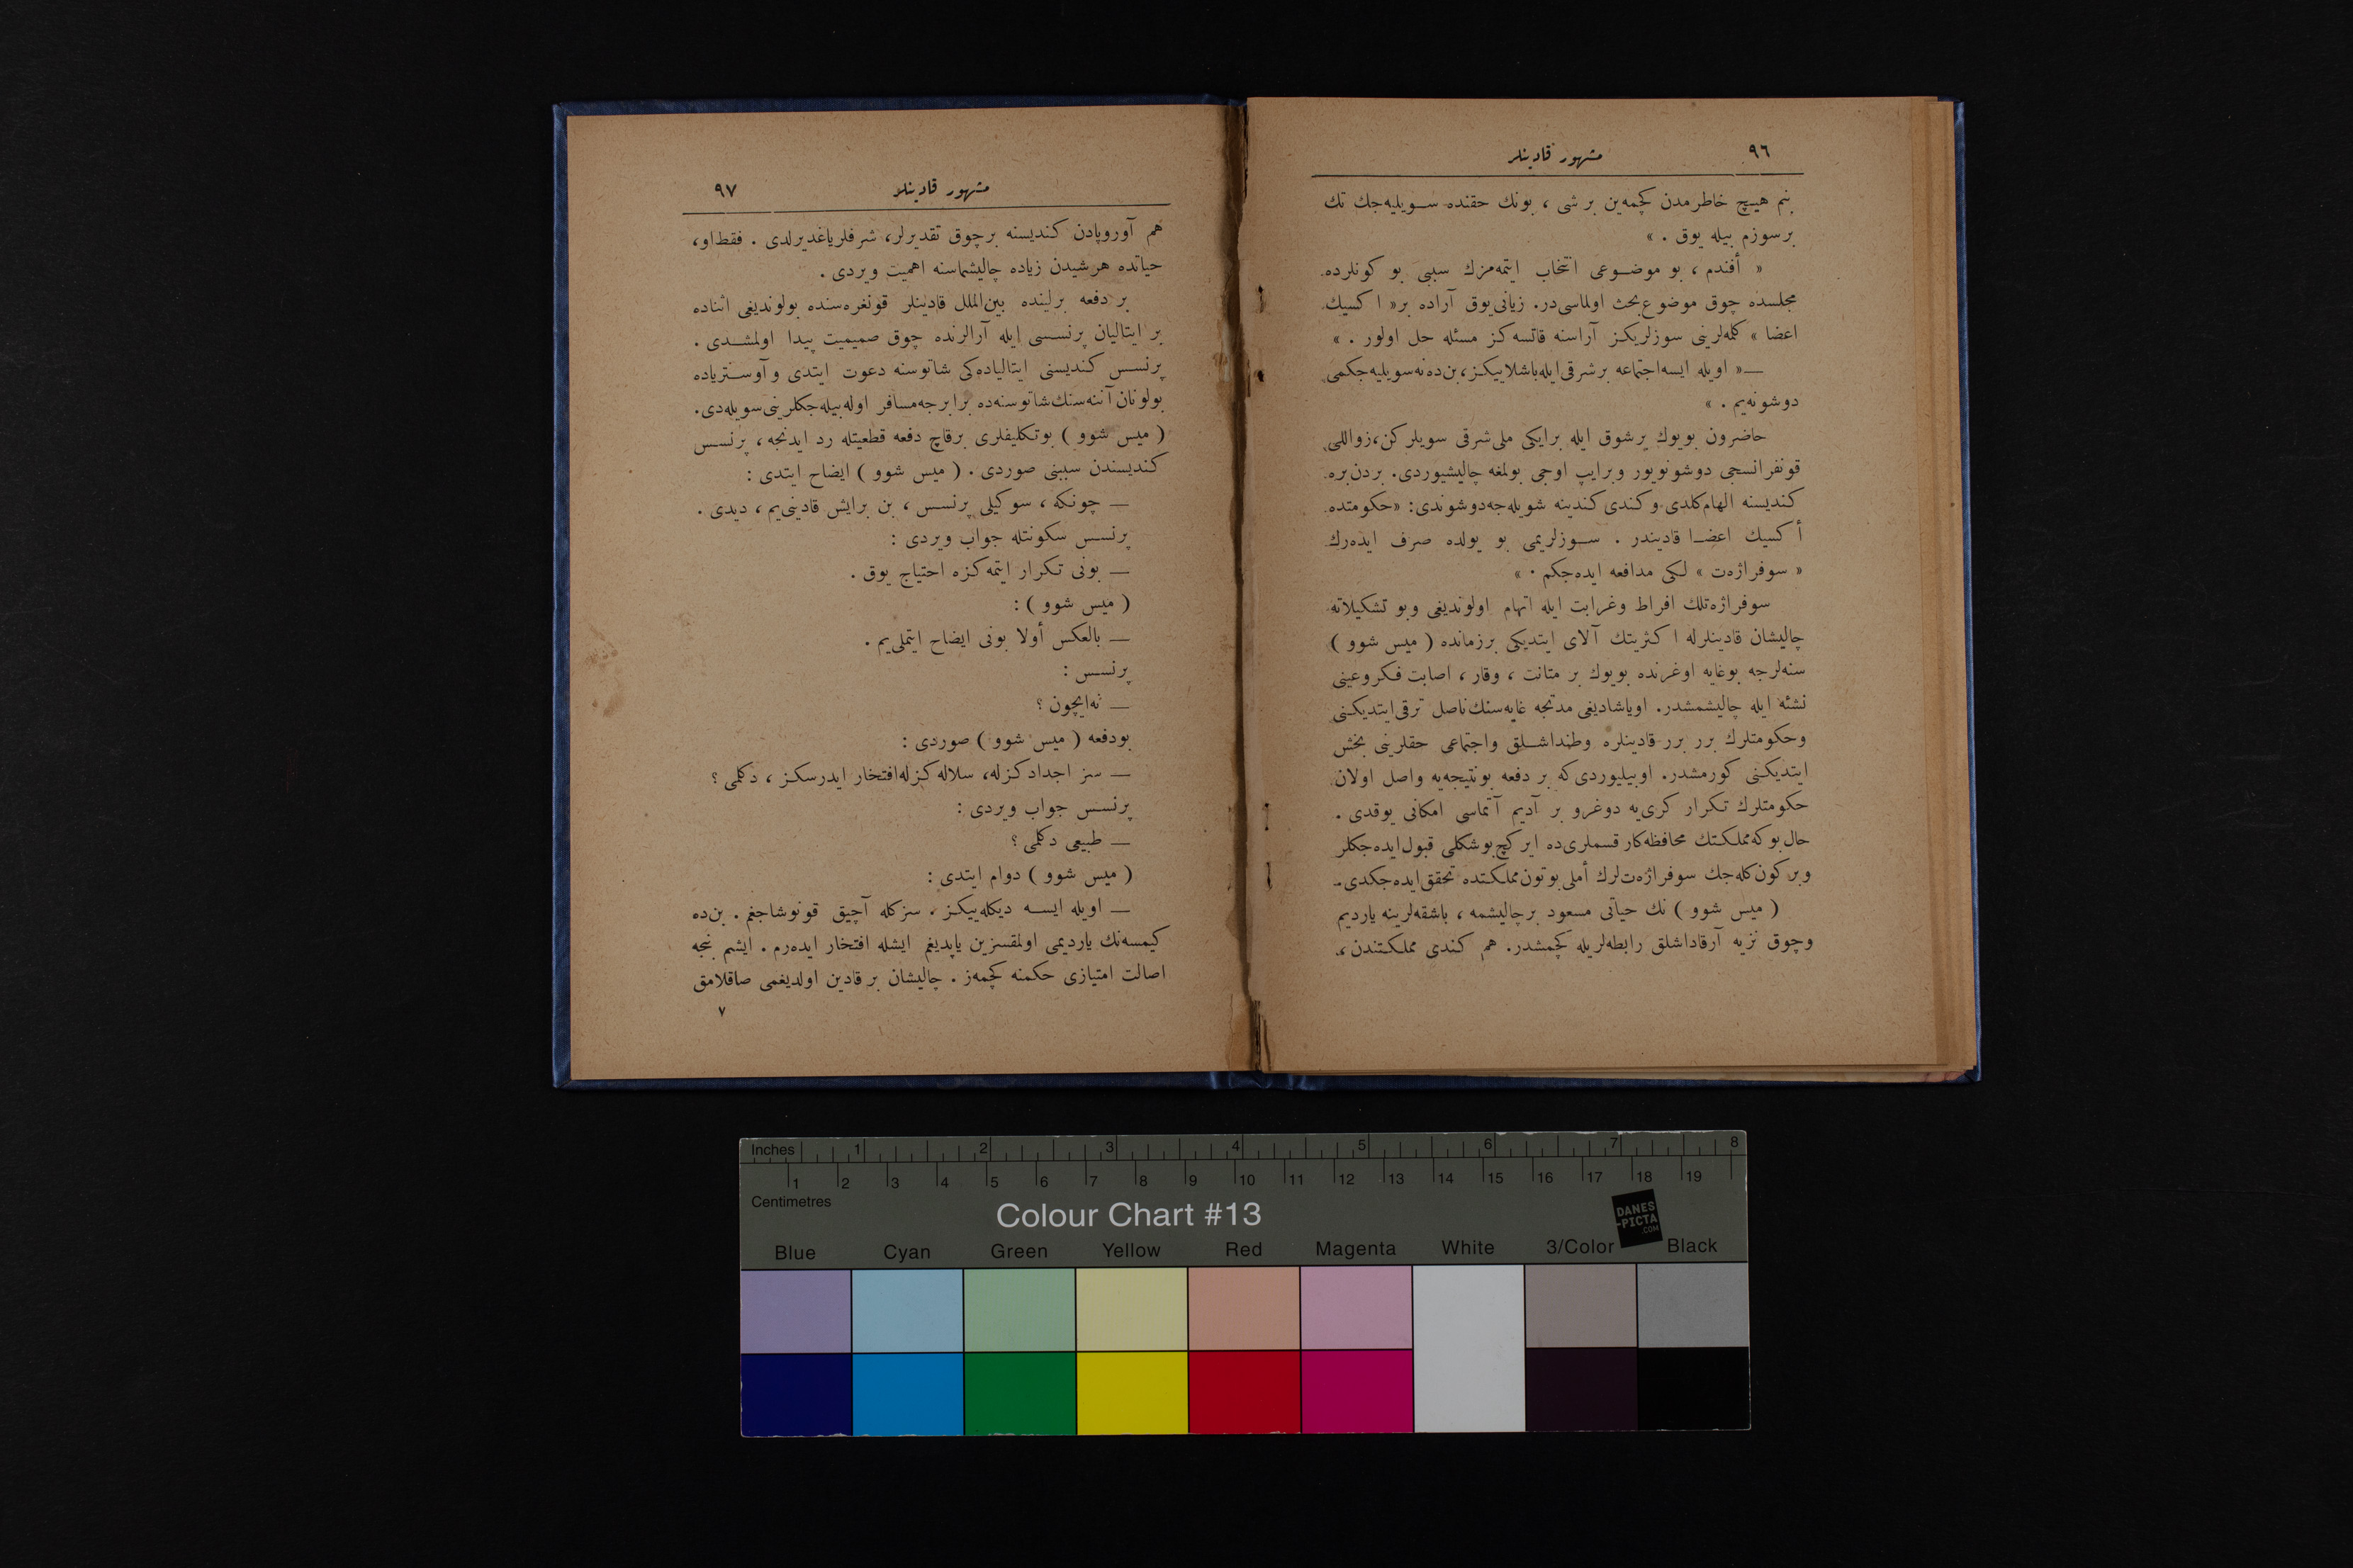 ٩٦
مشهور قادينلر
بنم هيچ خاطرمدن كچمه‌ين بر شى ، بونك حقنده سويليه‌جك تك
برسوزم بيله يوق . »
« أفندم ، بو موضوعى انتخاب ايتمه‌مزك سببى بو كونلرده
مجلسده چوق موضوع بحث اولماسى‌در. زيانى يوق آراده بر« اكسيك
اعضا » كله‌لرينى سوزلريكز آراسنه قاتسه‌كز مسئله حل اولور . »
ــ« اويله ايسه اجتماعه برشرقى ايله باشلاييكز، بن‌ده نه سويليه‌جكمى
دوشونه‌يم . »
حاضرون بويوك برشوق ايله برايكى ملى شرقى سويلركن، زواللى
قونفرانسجى دوشونويور وبرايپ اوجى بولمغه چاليشيوردى. بردن بره
كنديسنه الهام كلدى و كندى كندينه شويله‌جه دوشوندى: «حكومتده
أكسيك اعضا قاديندر . سوزلريمى بو يولده صرف ايده‌رك
« سوفراژه‌ت » لكى مدافعه ايده‌جكم . »
سوفراژه‌تلك افراط وغرابت ايله اتهام اولونديغى وبو تشكيلاته
چاليشان قادينلرله اكثريتك آلاى ايتديكى برزمانده ( ميس شوو )
سنه‌لرجه بوغايه اوغرنده بويوك بر متانت ، وقار ، اصابت فكر وعينى
نشئه ايله چاليشمشدر. اوياشاديغى مدتجه غايه‌سنك ناصل ترقى ايتديكنى
وحكومتلرك برر برر قادينلره وطنداشلق واجتماعى حقلرينى بخش
ايتديكنى كورمشدر. اوبيليوردى كه بر دفعه بونتيجه‌يه واصل اولان
حكومتلرك تكرار كرى‌يه دوغرو بر آديم آتماسى امكانى يوقدى .
حال بوكه مملكتك محافظه‌كار قسملرى‌ده اير كچ بوشكلى قبول ايده‌جكلر
وبر كون كله‌جك سوفراژه‌ت‌لرك أملى بوتون مملكتده تحقق ايده‌جكدى.
( ميس شوو ) نك حياتى مسعود برچاليشمه ، باشقه‌لرينه يارديم
وچوق نزيه آرقاداشلق رابطه‌لريله كچمشدر. هم كندى مملكتندن ،
مشهور قادينلر
٩٧
هم آوروپادن كنديسنه برچوق تقديرلر، شرفلر ياغديرلدى . فقط او،
حياتده هرشيدن زياده چاليشماسنه اهميت ويردى .
بر دفعه برلينده بين‌الملل قادينلر قونغره‌سنده بولونديغى اثناده
بر ايتاليان پرنسسى ايله آرالرنده چوق صميميت پيدا اولمشدى .
پرنسس كنديسنى ايتالياده‌كى شاتوسنه دعوت ايتدى و آوسترياده
بولونان آننه‌سنك شاتوسنه‌ده برابرجه مسافر اوله‌بيله‌جكلرينى سويله‌دى.
( ميس شوو ) بوتكليفلرى برقاچ دفعه قطعيتله رد ايدنجه ، پرنسس
كنديسندن سببنى صوردى . ( ميس شوو ) ايضاح ايتدى :
ــ چونكه ، سوكيلى پرنسس ، بن برايش قادينى‌يم ، ديدى .
پرنسس سكونتله جواب ويردى :
ــ بونى تكرار ايتمه‌كزه احتياج يوق .
( ميس شوو ) :
ــ بالعكس أولا بونى ايضاح ايتملى‌يم .
پرنسس :
ــ نه‌ايچون ؟
بودفعه ( ميس شوو ) صوردى :
ــ سز اجدادكزله، سلاله‌كزله افتخار ايدرسكز ، دكلمى ؟
پرنسس جواب ويردى :
ــ طبيعى دكلمى ؟
( ميس شوو ) دوام ايتدى :
ــ اويله ايسه ديكله‌ييكز . سزكله آچيق قونوشاجغم . بن‌ده
كيمسه‌نك يارديمى اولمقسزين ياپديغم ايشله افتخار ايده‌رم . ايشم بنجه
اصالت امتيازى حكمنه كچمه‌ز . چاليشان بر قادين اولديغمى صاقلامق
٧
Inches 1 2 3 4 5 6 7 8
1 2 3 4 5 6 7 8 9 10 11 12 13 14 15 16 17 18 19
Centimetres
Colour Chart #13
DANES
-PICTA
.COM
Blue Cyan Green Yellow Red Magenta White 3/Color Black